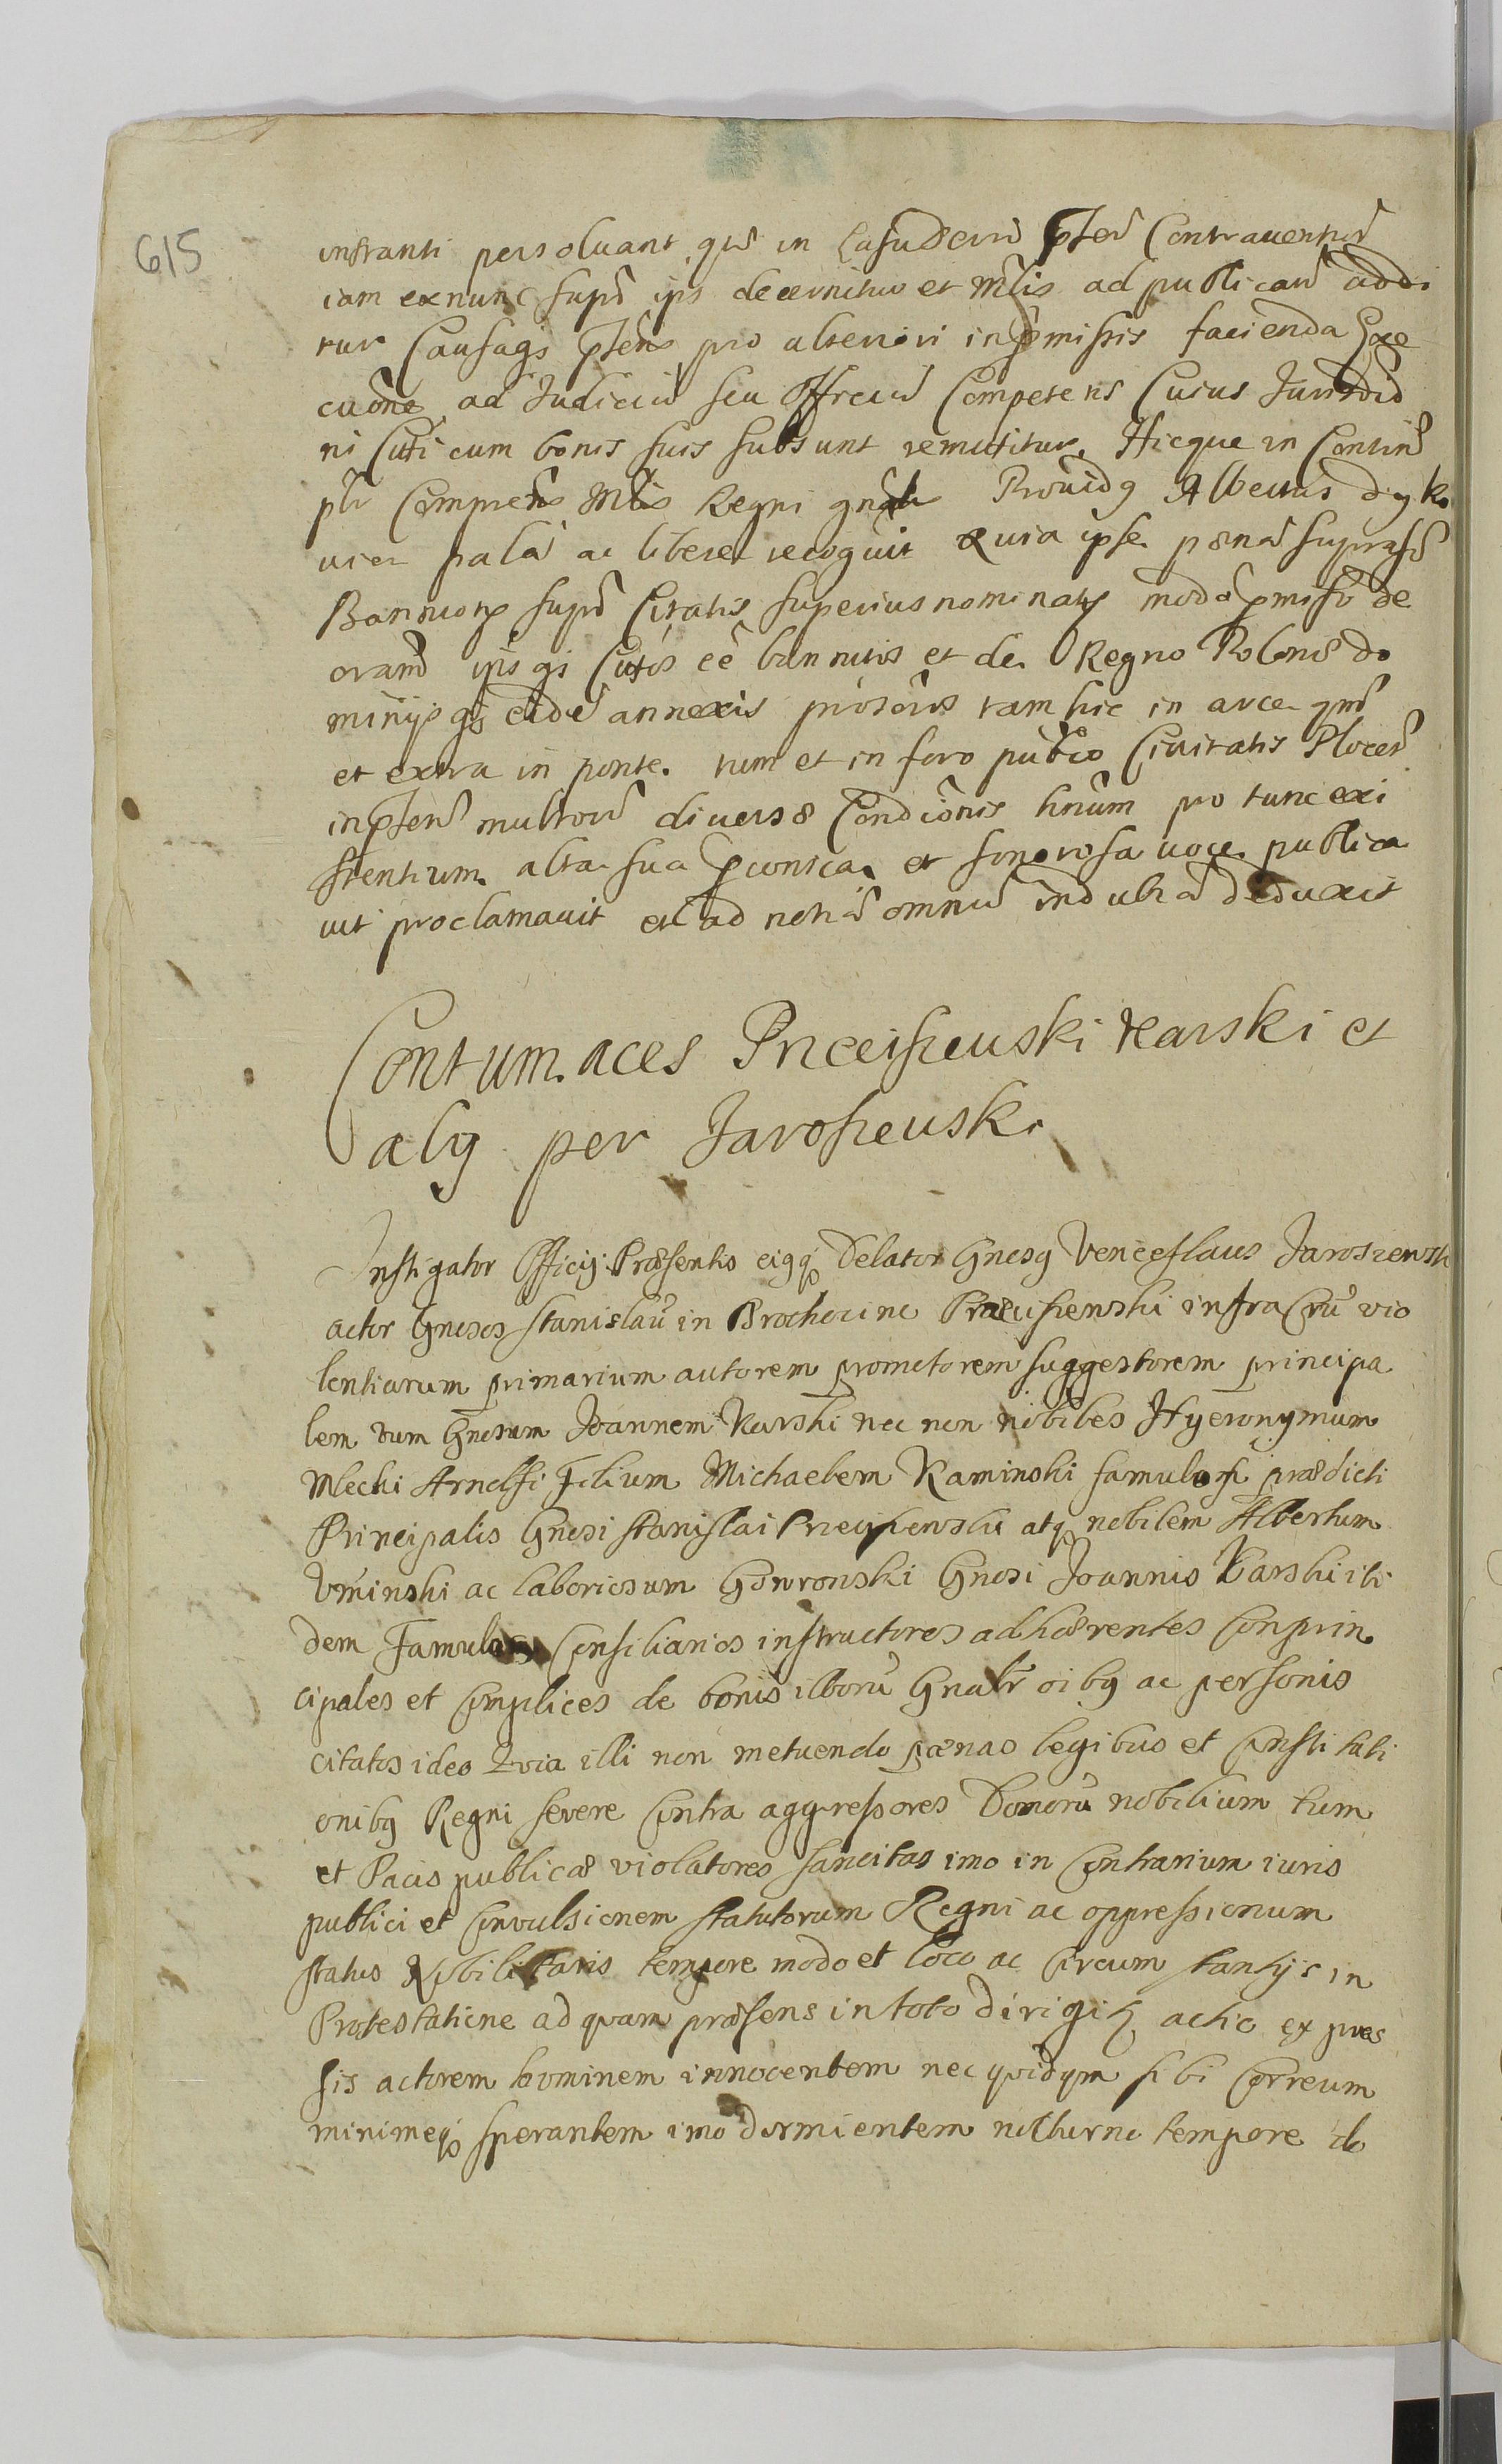 615
instanti persoluant qm̃ in Casu Secũ p̃ter Contrauentũ
iam exnunc sup̃ ip̃s decernitur et Mtis ad publicañ addi
tur Causaqs p̃tens pro ulteriori in p̃missis facienda Exe
cuõne ad Iudiciũ seu Officiũ Competens Cuius Iurisdiõ
ni Citti cum bonis suis subsunt remittitur. Hicque in Contiñ
pr̃ Comprens Mtis Regni gnalis Prouidg Albertus dyk
uier palã ac libere recog̃uit Quia ipse pænã supras̃
Bannitor̃ sup̃ Citatis superius nominatis modõ p̃misso de
orand̃ ip̃s qs Citis eẽ bannitis et de Regno Poloniæ do
minijs qs eidẽ annexis tam hic in arce qm̃
et extra in ponte tum et in foro publico Ciuitatis Ploceñ
in p̃tens multorũ diuersæ Condiõnis hñum pro tunc exi
stentium alta sua p̃conica et sonorosa uoce publica
uit proclamauit et ad notiã omniũ indubiã deduxit
Contumaces Prceiszeuski Karski et
alij per Jaroszeuski
Instigator Officij Præsentis eigq̃ Delator Gnesg Venceslaus Jaroszewsk
actor Gnesos Stanislaũ in Brochocine Præciszewski infra Crũ vio
lentiarum primarium autorem promotorem suggestorem principa
lem tum Gnosum Joannem Karski nec non nobiles Hyeronymum
Mlecki Arnolfi Filium Michaelem Kaminski famulos prædicti
Principalis Gnosi Stanislai Prceciszewski atq̃ nobilem Albertum
Vminski ac laboriosum Gowronski Gnosi Joannis Karski ibi
dem Famulos Consiliarios instructores adhærentes Conprin
cipales et Complices de bonis illorũ Gnalr̃ oibg ac personis
citatos ideo Quia illi non metuendo pœnas legibus et Constituti
onibg Regni severe Contra aggressores Domorũ nobilium tum
et Pacis publicæ violatores sancitas imo in Contrarium iuris
publici et Convulsionem Statutorum Regni ac oppressionum
status Nobilitaris tempore modo et loco ac Circum stantijs in
Protestatione ad quam præsens in toto dirigit̃ actio expres
sis actorem hominem innocentem nec quidqm sibi Correum
minimeq̃ sperantem imo dormientem nocturno tempore do